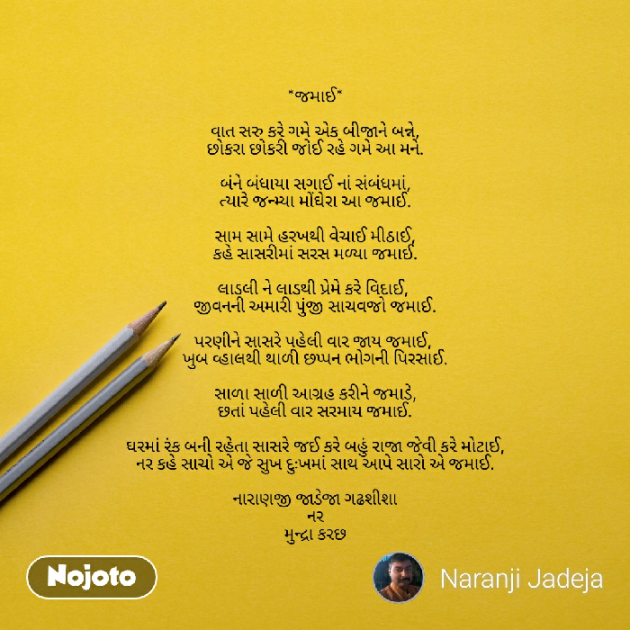 *જમાઈ*
વાત સરુ કરે ગમે એક બીજાને બન્ને,
છોકરા છોકરી જોઈ રહે ગમે આ મને.
બંને બંધાયા સગાઈ નાં સંબંધમાં,
ત્યારે જન્મ્યા મોંઘેરા આ જમાઈ.
સામ સામે હરખથી વેચાઈ મીઠાઈ,
કહે સાસરીમાં સરસ મળ્યા જમાઈ.
લાડલી ને લાડથી પ્રેમે કરે વિદાઈ,
જીવનની અમારી પુંજી સાચવજો જમાઈ.
પરણીને સાસરે પહેલી વાર જાય જમાઈ,
ખુબ વ્હાલથી થાળી છપ્પન ભોગની પિરસાઈ.
સાળા સાળી આગ્રહ કરીને જમાડે,
છતાં પહેલી વાર સરમાય જમાઈ.
ઘરમાં રંક બની રહેતા સાસરે જઈ કરે બહું રાજા જેવી કરે મોટાઈ,
નર કહે સાચો એ જે સુખ દુઃખમાં સાથ આપે સારો એ જમાઈ.
નારાણજી જાડેજા ગઢશીશા
નર
મુન્દ્રા કરછ
Nojoto
Naranji Jadeja